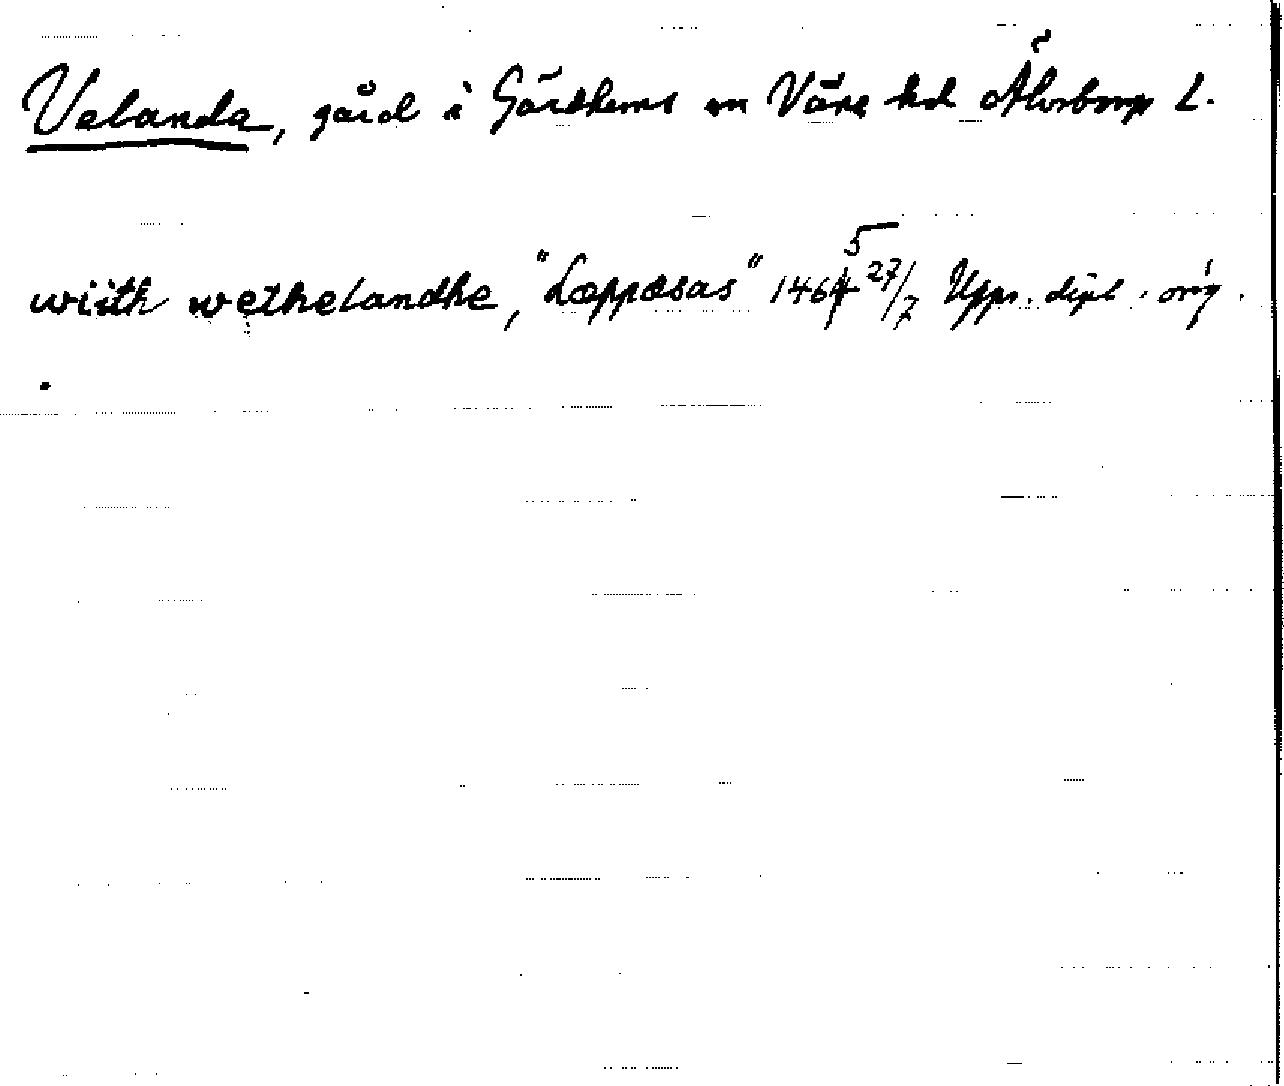 Velanda, gård i Gärdhems sn Väne hd Älvsborgs L.
wiith wethelandhe, "Læppæsas" 1465 27/7 Upps. dipl. orig.